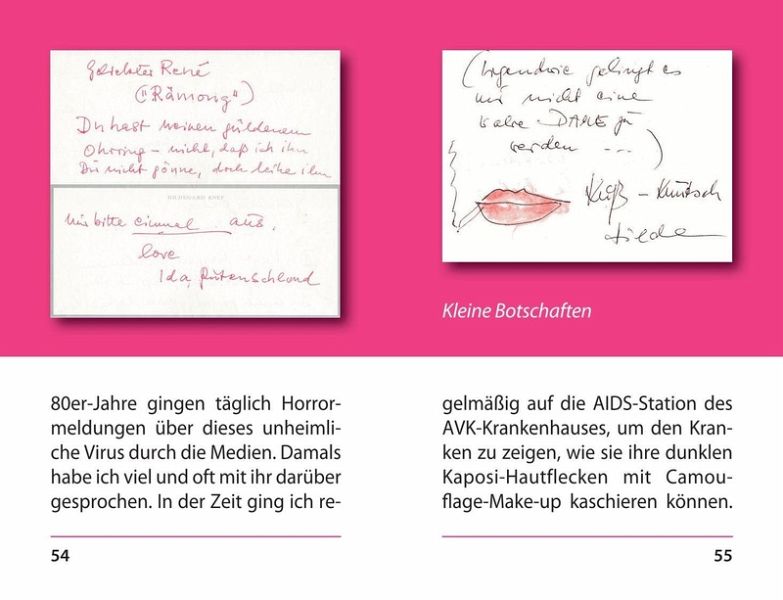 Geliebter René
("Rämong")
Du hast meinen güldenen
Ohrring – nicht, daß ich ihn
Dir nicht gönne, doch leihe ihn
HILDEGARD KNEF
mir bitte einmal aus.
love
Ida
(Irgendwie gelingt es
mir nicht eine
wahre DAME zu
werden ...)
Kuß – Knutsch
Kleine Botschaften
80er-Jahre gingen täglich Horror-
meldungen über dieses unheimli-
che Virus durch die Medien. Damals
habe ich viel und oft mit ihr darüber
gesprochen. In der Zeit ging ich re-
54
gelmäßig auf die AIDS-Station des
AVK-Krankenhauses, um den Kran-
ken zu zeigen, wie sie ihre dunklen
Kaposi-Hautflecken mit Camou-
flage-Make-up kaschieren können.
55